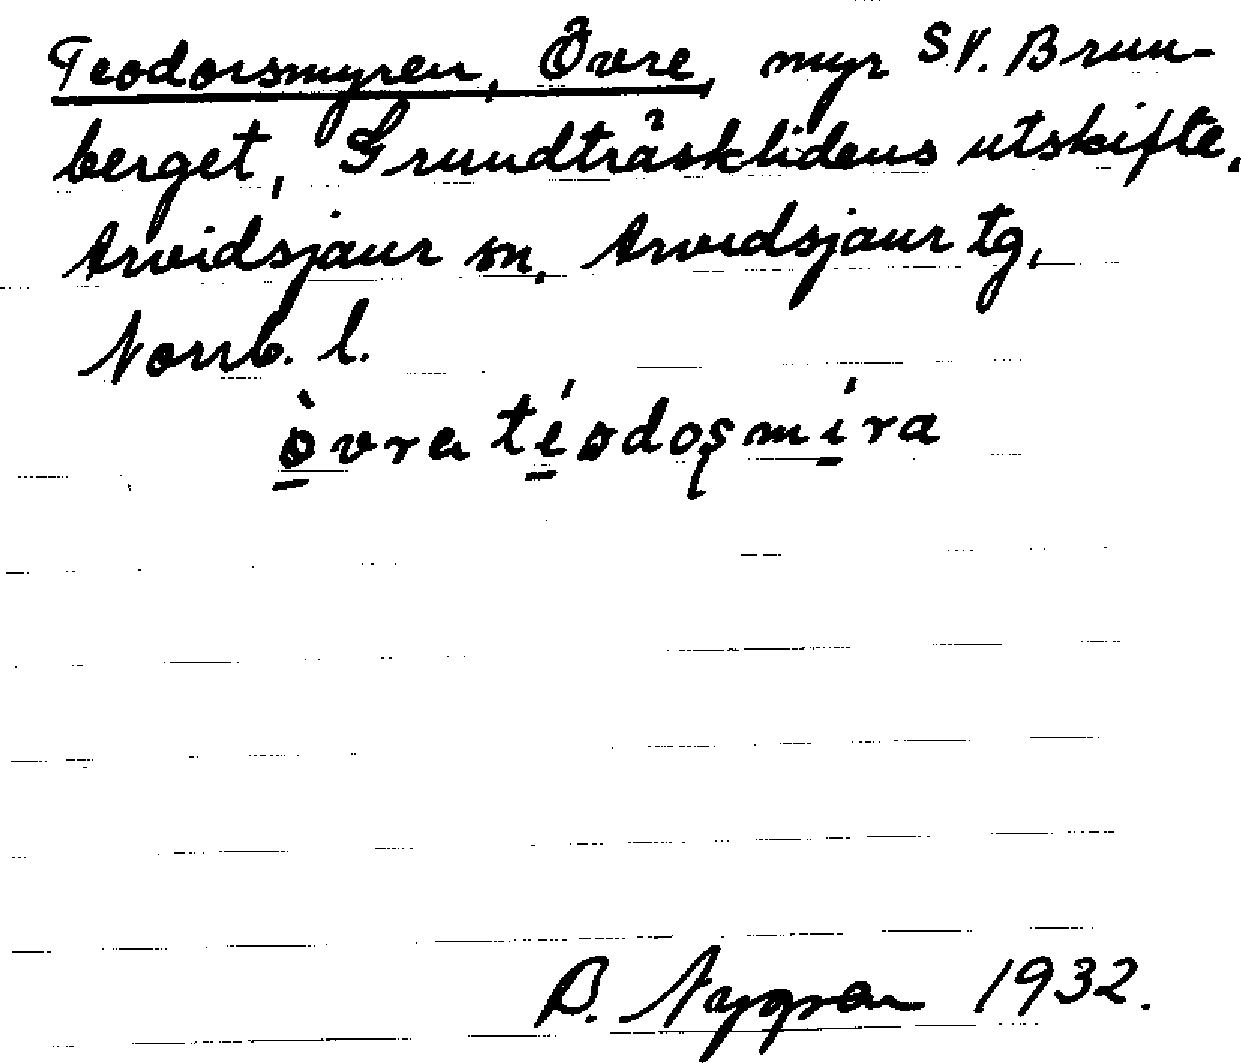 Teodorsmyren, Övre, myr SV. Brun-
berget, Grundträsklidens utskifte,
Arvidsjaur sn, Arvidsjaur tg,
Norrb. l.
B. Nygren 1932.